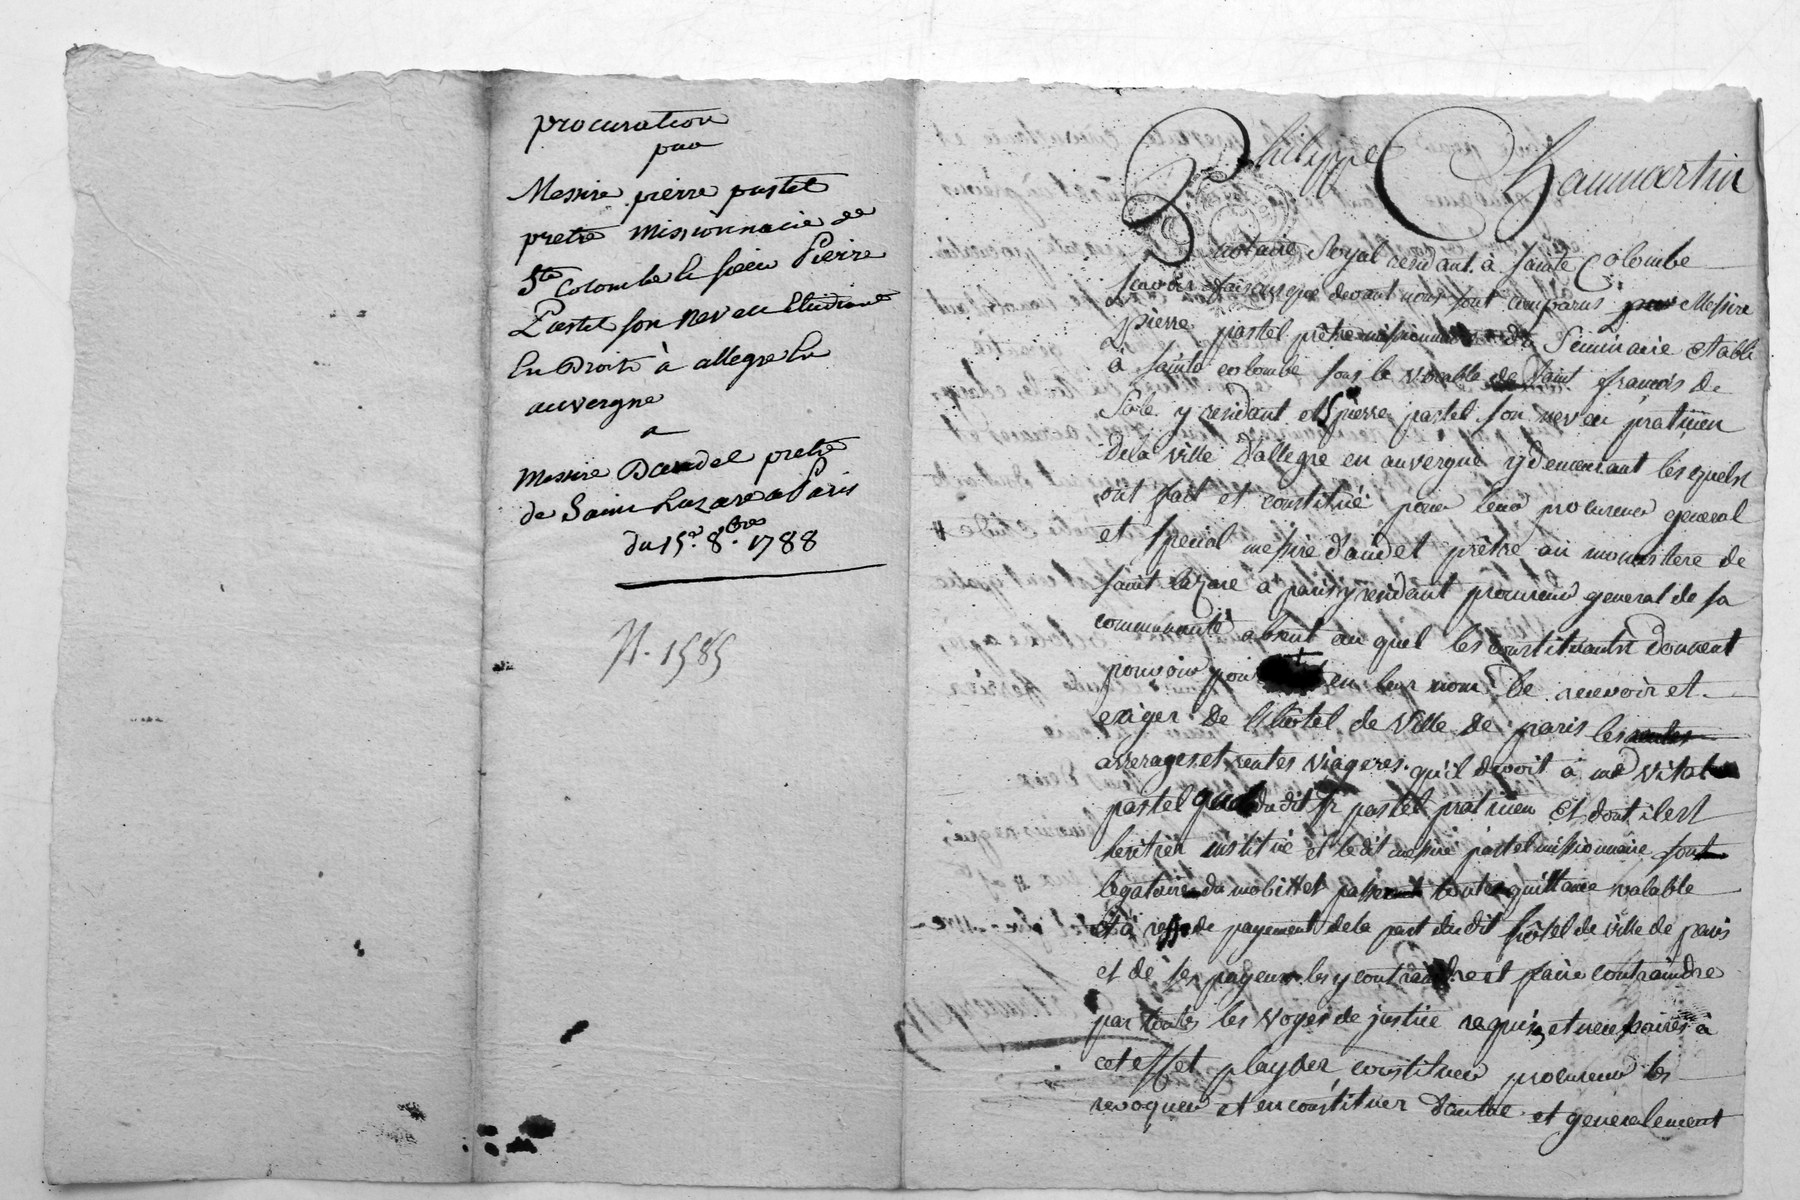 procuration
par
Messire pierre pastel
pretre missionnacie de
Ste Colombe le sieur Pierre
Pastel son neveu Etudiant
En Droit à allegre En
auvergne
a
Messire Daudet pretre
de Saint Lazare a Paris
du 15e. 8bre. 1788
N. 1585
Philippe Chaumartin
notaire Royal residant à sainte Colombe
scavoir faisons que devant nous sont comparus Messire
pierre pastel prêtre missionnaire du seminaire etabli
à sainte colombe sous le vocable de saint francois de
Sale y residant et Sr pierre pastel son neveu praticien
de la ville D'allegre en auvergne y demeurant lesquels
ont fait et constitué pour leur procureur general
et special messire daudet prêtre au monastere de
saint lazare a paris y residant procureur general de sa
communauté absent au quel les constituants donnent
pouvoir pour en leur nom de recevoir et
exiger de l'hôtel de ville de paris les
arrerages et rentes viageres qu'il devoit à me vital
pastel dudit sr pastel praticien et dont il est
heritier institué et ledit messire pastel missionnaire
legataire du mobilier passer toutes quittance valable
et à reffus de payement de la part du dit hôtel de ville de paris
et de ses payeurs les y contraindre et faire contraindre
par toutes les voyes de justice requises et necessaires à
cet effet playder, constituer procureur les
revoquer et en constituer d'autre et generalement